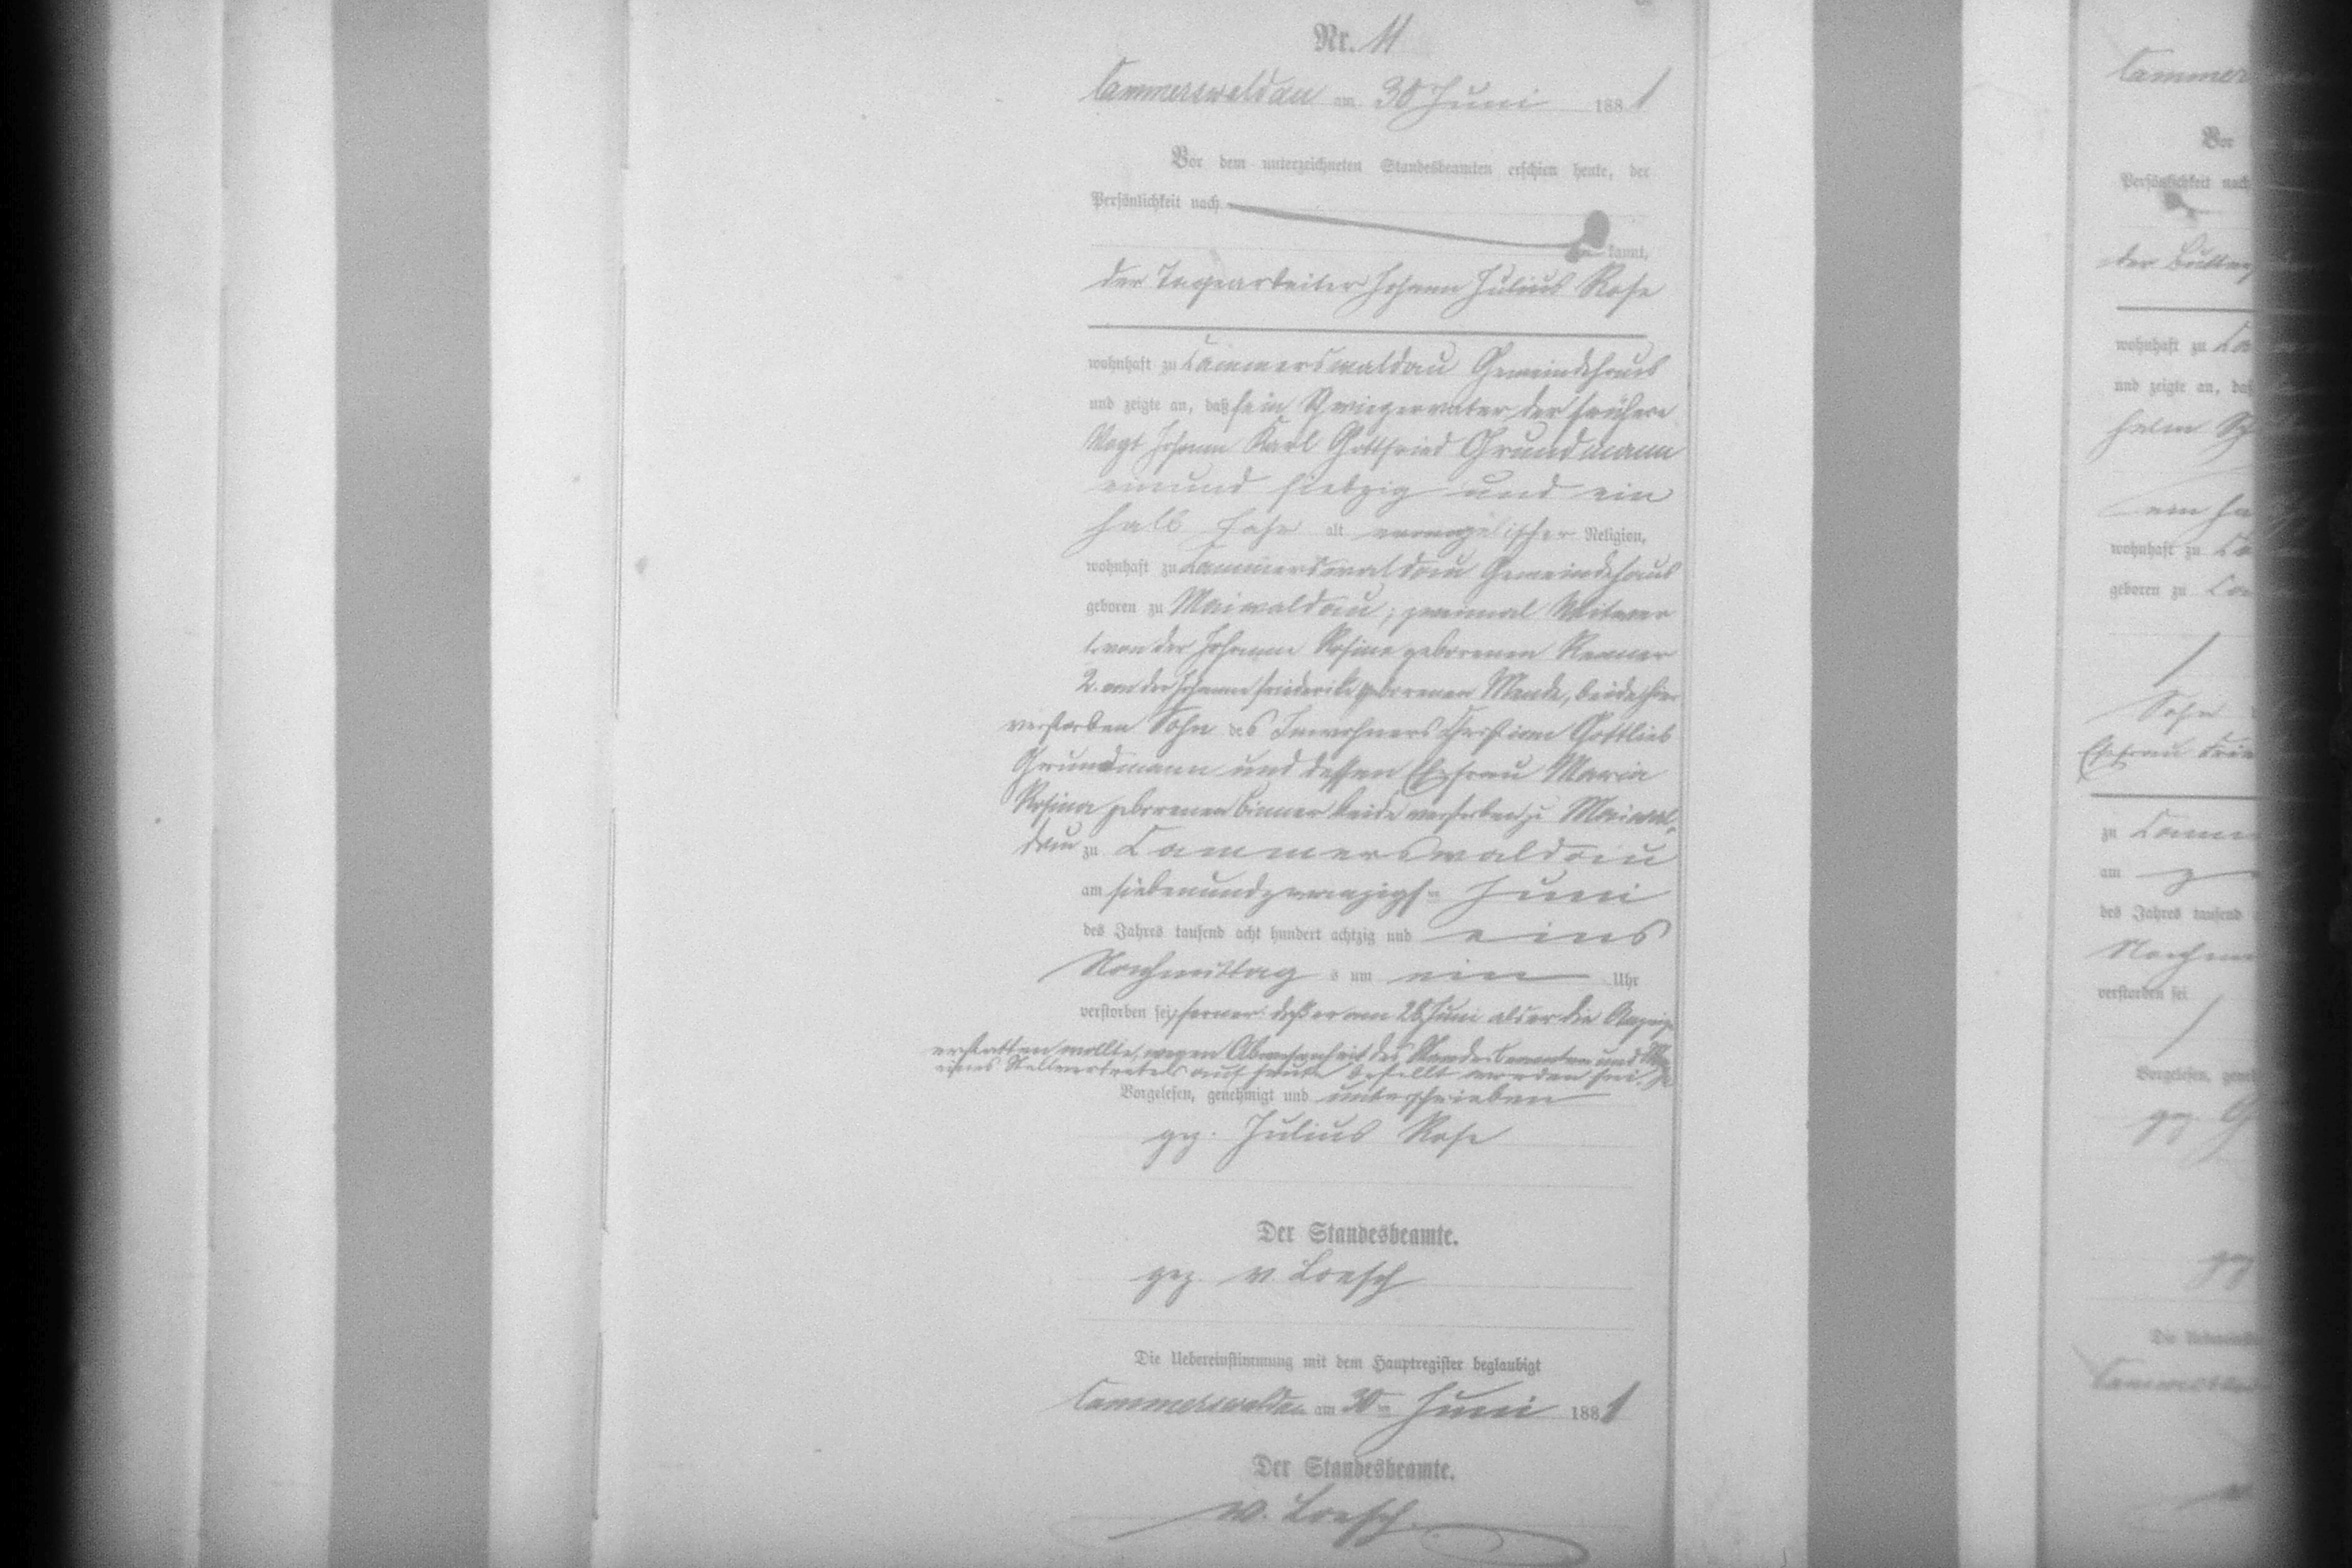 Nr. 11
Cammerswaldau am 30 Juni 1881
Vor dem unterzeichneten Standesbeamten erschien heute, der
Persönlichkeit nach
kannt,
der Tagearbeiter Johann Julius Rose
wohnhaft zu Cammerswaldau Gemeindehaus
und zeigte an, daß sein Schwiegervater der frühere
Vogt Johann Karl Gottfried Grundmann
einund siebzig und ein
halb Jahr alt evangelischer Religion,
wohnhaft zu Cammerswaldau Gemeindehaus
geboren zu Maiwaldau; zweimal Witwer
1. von der Johanne Rosine geborenen Renner
2. von der Johanne Friederike geborenen Mende, beide hier
verstorben Sohn des Inwohners Christian Gottlieb
Grundmann und dessen Ehefrau Maria
Rosina geborenen beide verstorben zu Maiwal-
dau zu Cammerswaldau
am siebenundzwanzigsten Juni
des Jahres tausend acht hundert achtzig und eins
Nachmittags um ein Uhr
verstorben sei, ferner: daß er am 28 Juni als er die Anzeige
erstatten wollte, wegen Abwesenheit des Standesbeamten und
eines Stellvertreters auf heute bestellt worden sei.
Vorgelesen, genehmigt und unterschrieben
gez. Julius Rose
Der Standesbeamte.
gez. v. Loesch
Die Uebereinstimmung mit dem Hauptregister beglaubigt
Cammerswaldau am 30ten Juni 1881
Der Standesbeamte.
v. Loesch
Cammer
Vor
Persönlichkeit nach
der
wohnhaft zu Ca
und zeigte an, daß
helm
ein ha
wohnhaft zu Ca
geboren zu Ca
Sohn
Ehefrau
zu Camm
am
des Jahres tausend
Nachm
verstorben sei
Vorgelesen, geneh
gez. G
gez
Die Uebereinsti
Cammerswal